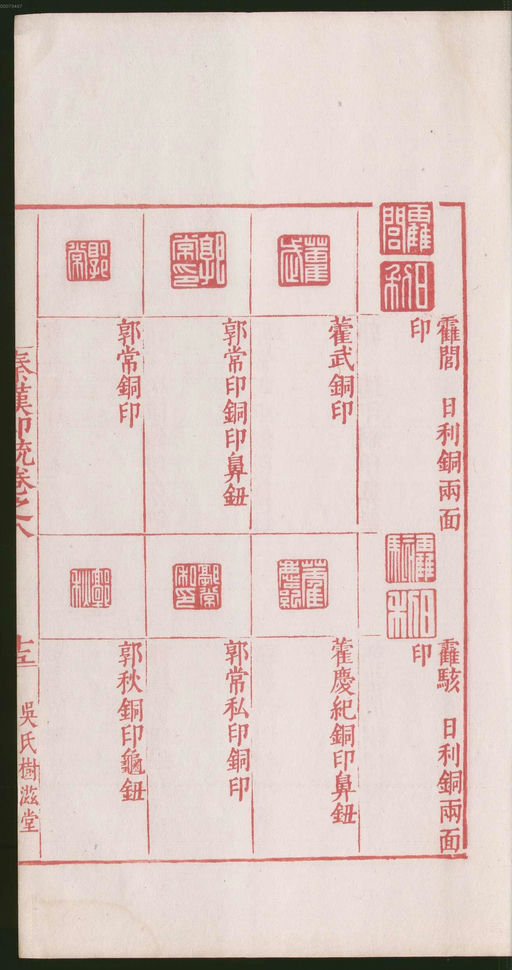 靃閭　日利銅兩面
印
藿武銅印
郭常印銅印鼻鈕
郭常銅印
靃駭　日利銅兩面
印
藿慶紀銅印鼻鈕
郭常私印銅印
郭秋銅印龜鈕
秦漢印統卷之八
十三
吳氏樹滋堂
00073467